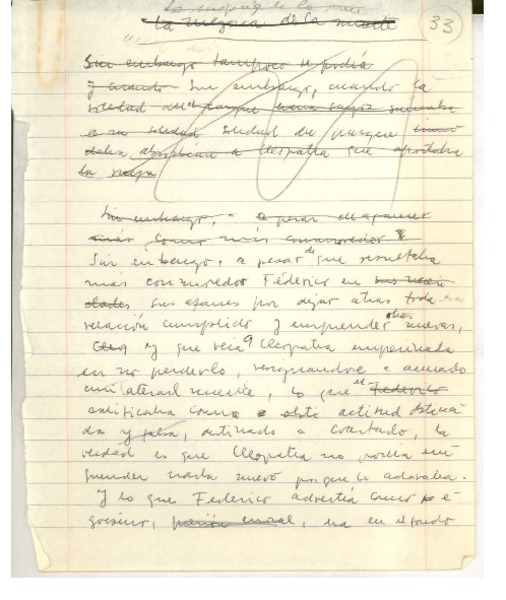 la mejoría de la muerte
33
Sin embargo tampoco se podía
y cuando sin embargo, cuando la
soledad del parque
a su soledad soledad del parque
a Cleopatra que apostaba
la
Sin embargo, a pesar de aparecer
más como más conmovedor
Sin embargo, a pesar de que resultaba
más conmovedor Féderico en
sus afanes por dejar atrás toda esa
relación cumplido y emprender otras nuevas,
y que veía a Cleopatra empecinada
en no perderlo, resguardarse
unilateralmente, lo que el Federico
calificaba como esta actitud
da y falsa, destinado a coartarlo, la
verdad es que Cleopatra no podía em
prender nada nuevo porque lo adoraba.
Y lo que Federico advertía como e-
goísmo, era en el fondo